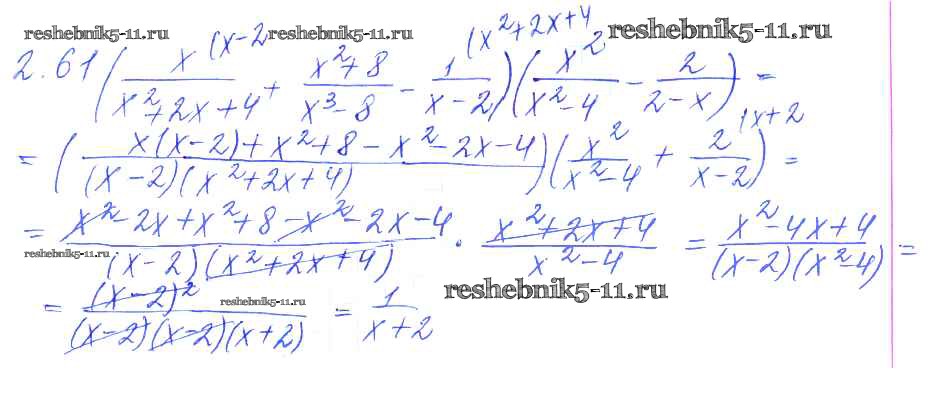 reshebnik5-11.ru reshebnik5-11.ru reshebnik5-11.ru
2.61 (x/(x²+2x+4) (x-2 + (x²+8)/(x³-8) - 1/(x-2)) (x²+2x+4 (x²/(x²-4) - 2/(2-x)) =
= ((x(x-2)+x²+8-x²-2x-4)/((x-2)(x²+2x+4))) (x²/(x²-4) + 2/(x-2)) (x+2 =
= (x²-2x+x²+8-x²-2x-4)/((x-2)(x²+2x+4)) · (x²+2x+4)/(x²-4) = (x²-4x+4)/((x-2)(x²-4)) =
reshebnik5-11.ru
= (x-2)²/((x-2)(x-2)(x+2)) = 1/(x+2)
reshebnik5-11.ru reshebnik5-11.ru